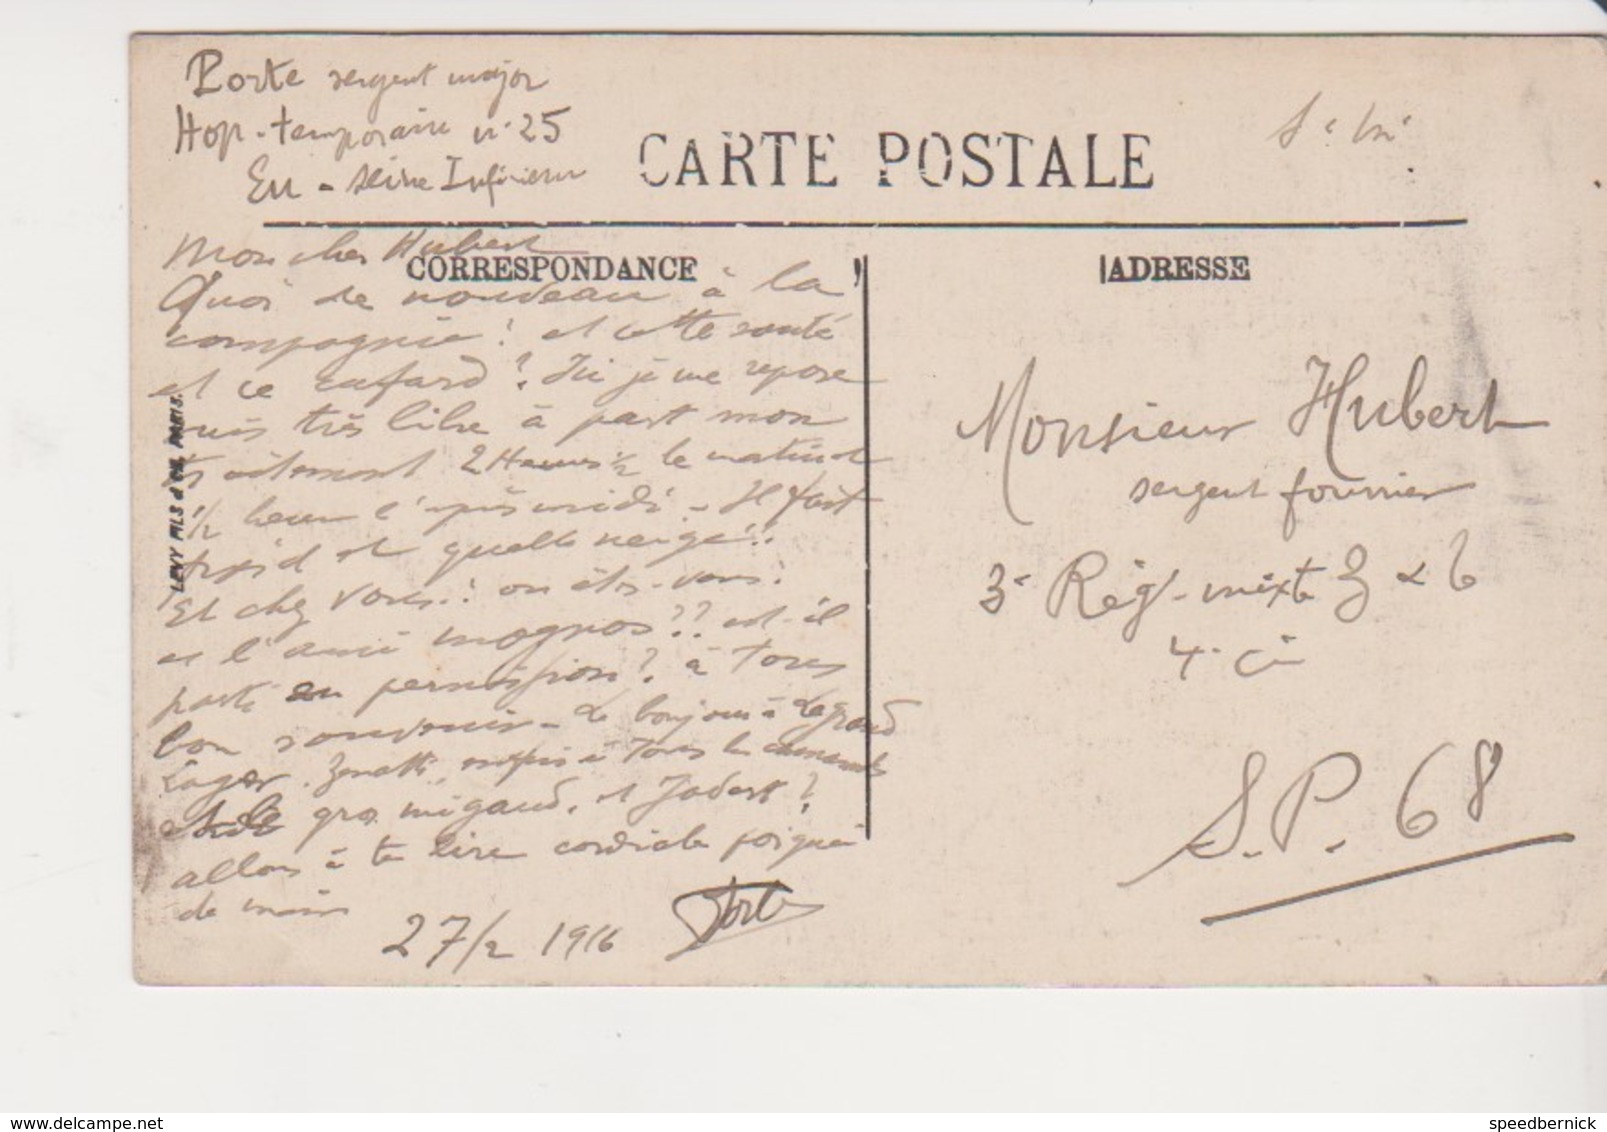 Porte sergent major
Hop. temporaire n° 25
Eu - Seine Inférieure
CARTE POSTALE
Mon cher Hubert
CORRESPONDANCE
ADRESSE
Quoi de nouveau à la
compagnie ? et cette santé
et ce cafard ? Ici je me repose
suis très libre à part mon
traitement 2 Heures ½ le matin et
½ heure l'après midi - Il fait
froid et quelle neige !!
Et chez vous ? où êtes-vous ?
et l'ami magnos ?? est-il
parti en permission ? à tous
bon souvenir - Le bonjour à Legrand
Lager. Zenatti, à tous les
et le gros migaud. et Jadart ?
allons à te lire cordiale poignée
de main
27/2 1916
Porte
LEVY FILS & Cie PARIS.
Monsieur Hubert
sergent fourrier
3e Régt mixte Z & T
4e Cie
S.P. 68
delcampe.net
speedbernick